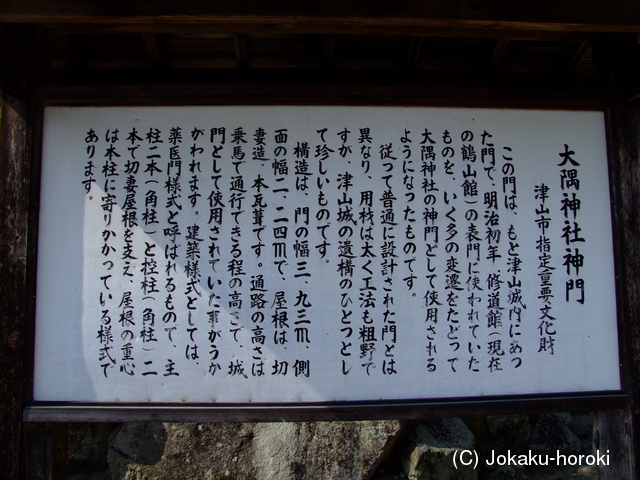 大隅神社神門
津山市指定重要文化財
この門は、もと津山城内にあっ
た門で、明治初年修道館(現在
の鶴山館)の表門に使われていた
ものを、いく多の変遷をたどって
大隅神社の神門として使用される
ようになったものです。
従って普通に設計された門とは
異なり、用材は太く工法も粗野で
すが、津山城の遺構のひとつとし
て珍しいものです。
構造は、門の幅三、九三M、側
面の幅二、二四Mで、屋根は、切
妻造、本瓦葺です。通路の高さは
乗馬で通行できる程の高さで、城
門として使用されていた事がうか
がわれます。建築様式としては、
薬医門様式と呼ばれるもので、主
柱二本(角柱)と控柱(角柱)二
本で切妻屋根を支え、屋根の重心
は本柱に寄りかかっている様式で
あります。
(C) Jokaku-horoki